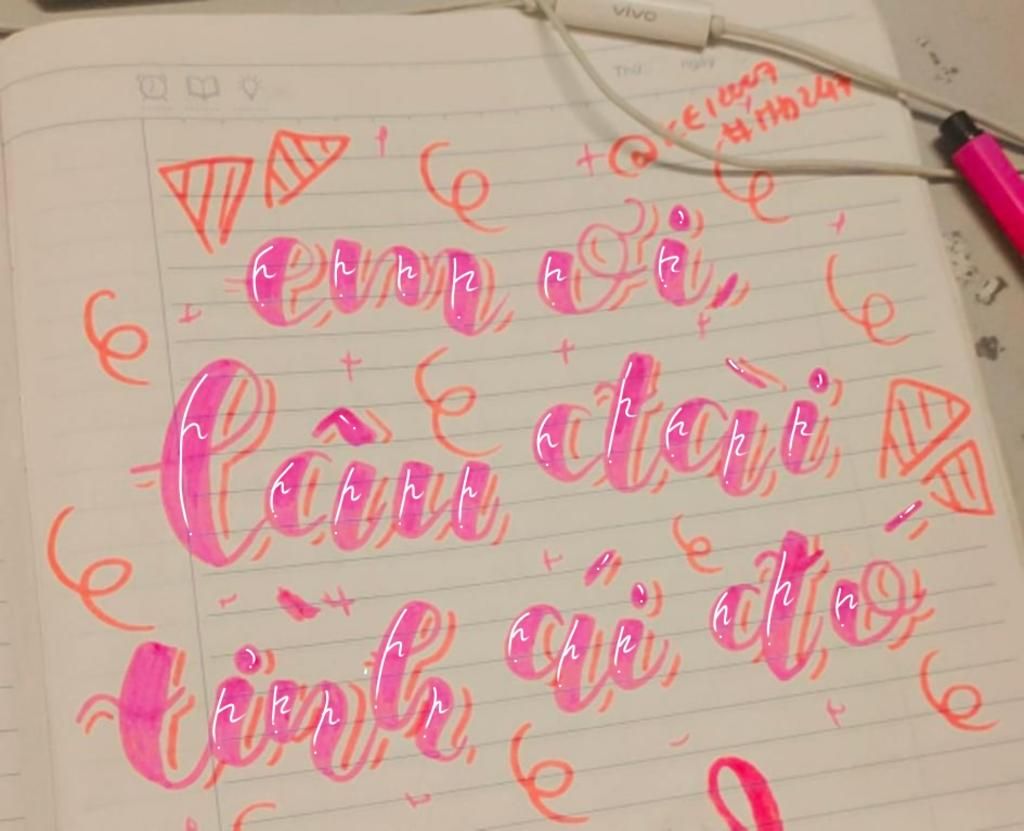 vivo
Thứ ngày
em ơi,
lâu đài
tình ái đó